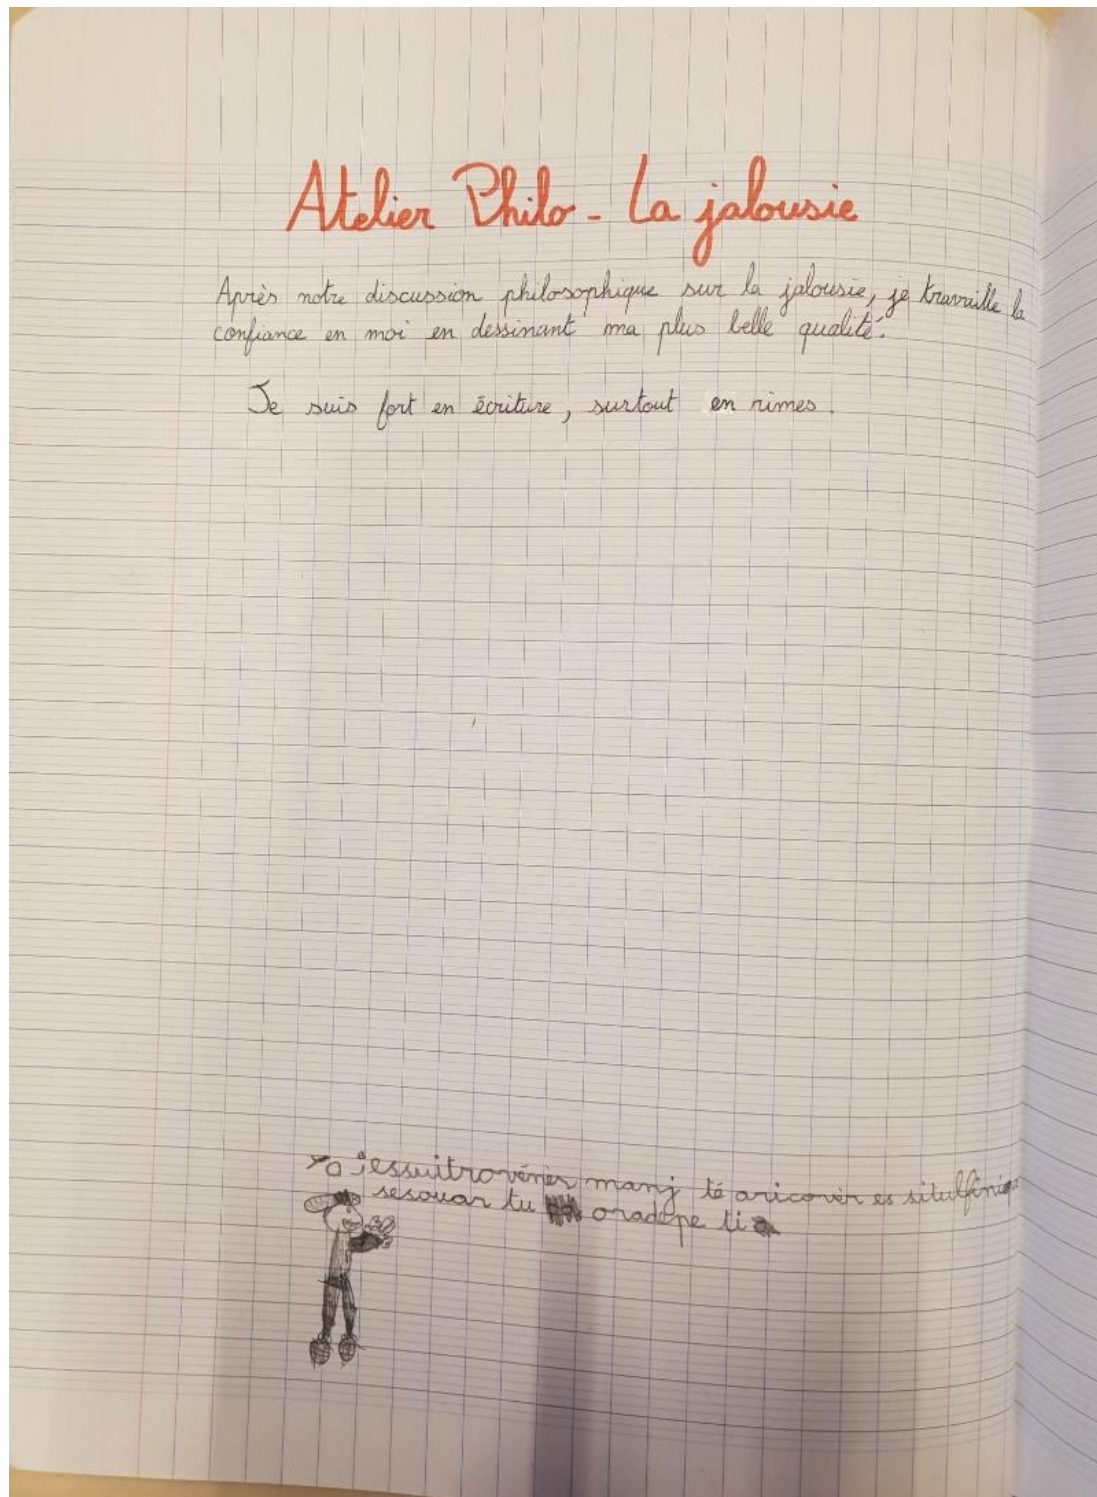 Atelier Philo - La jalousie
Après notre discussion philosophique sur la jalousie, je travaille la
confiance en moi en dessinant ma plus belle qualité.
Je suis fort en écriture, surtout en rimes.
Yo jessuitrovénèr manj té aricovèr es situlfini
sesouar tu oradepe ti